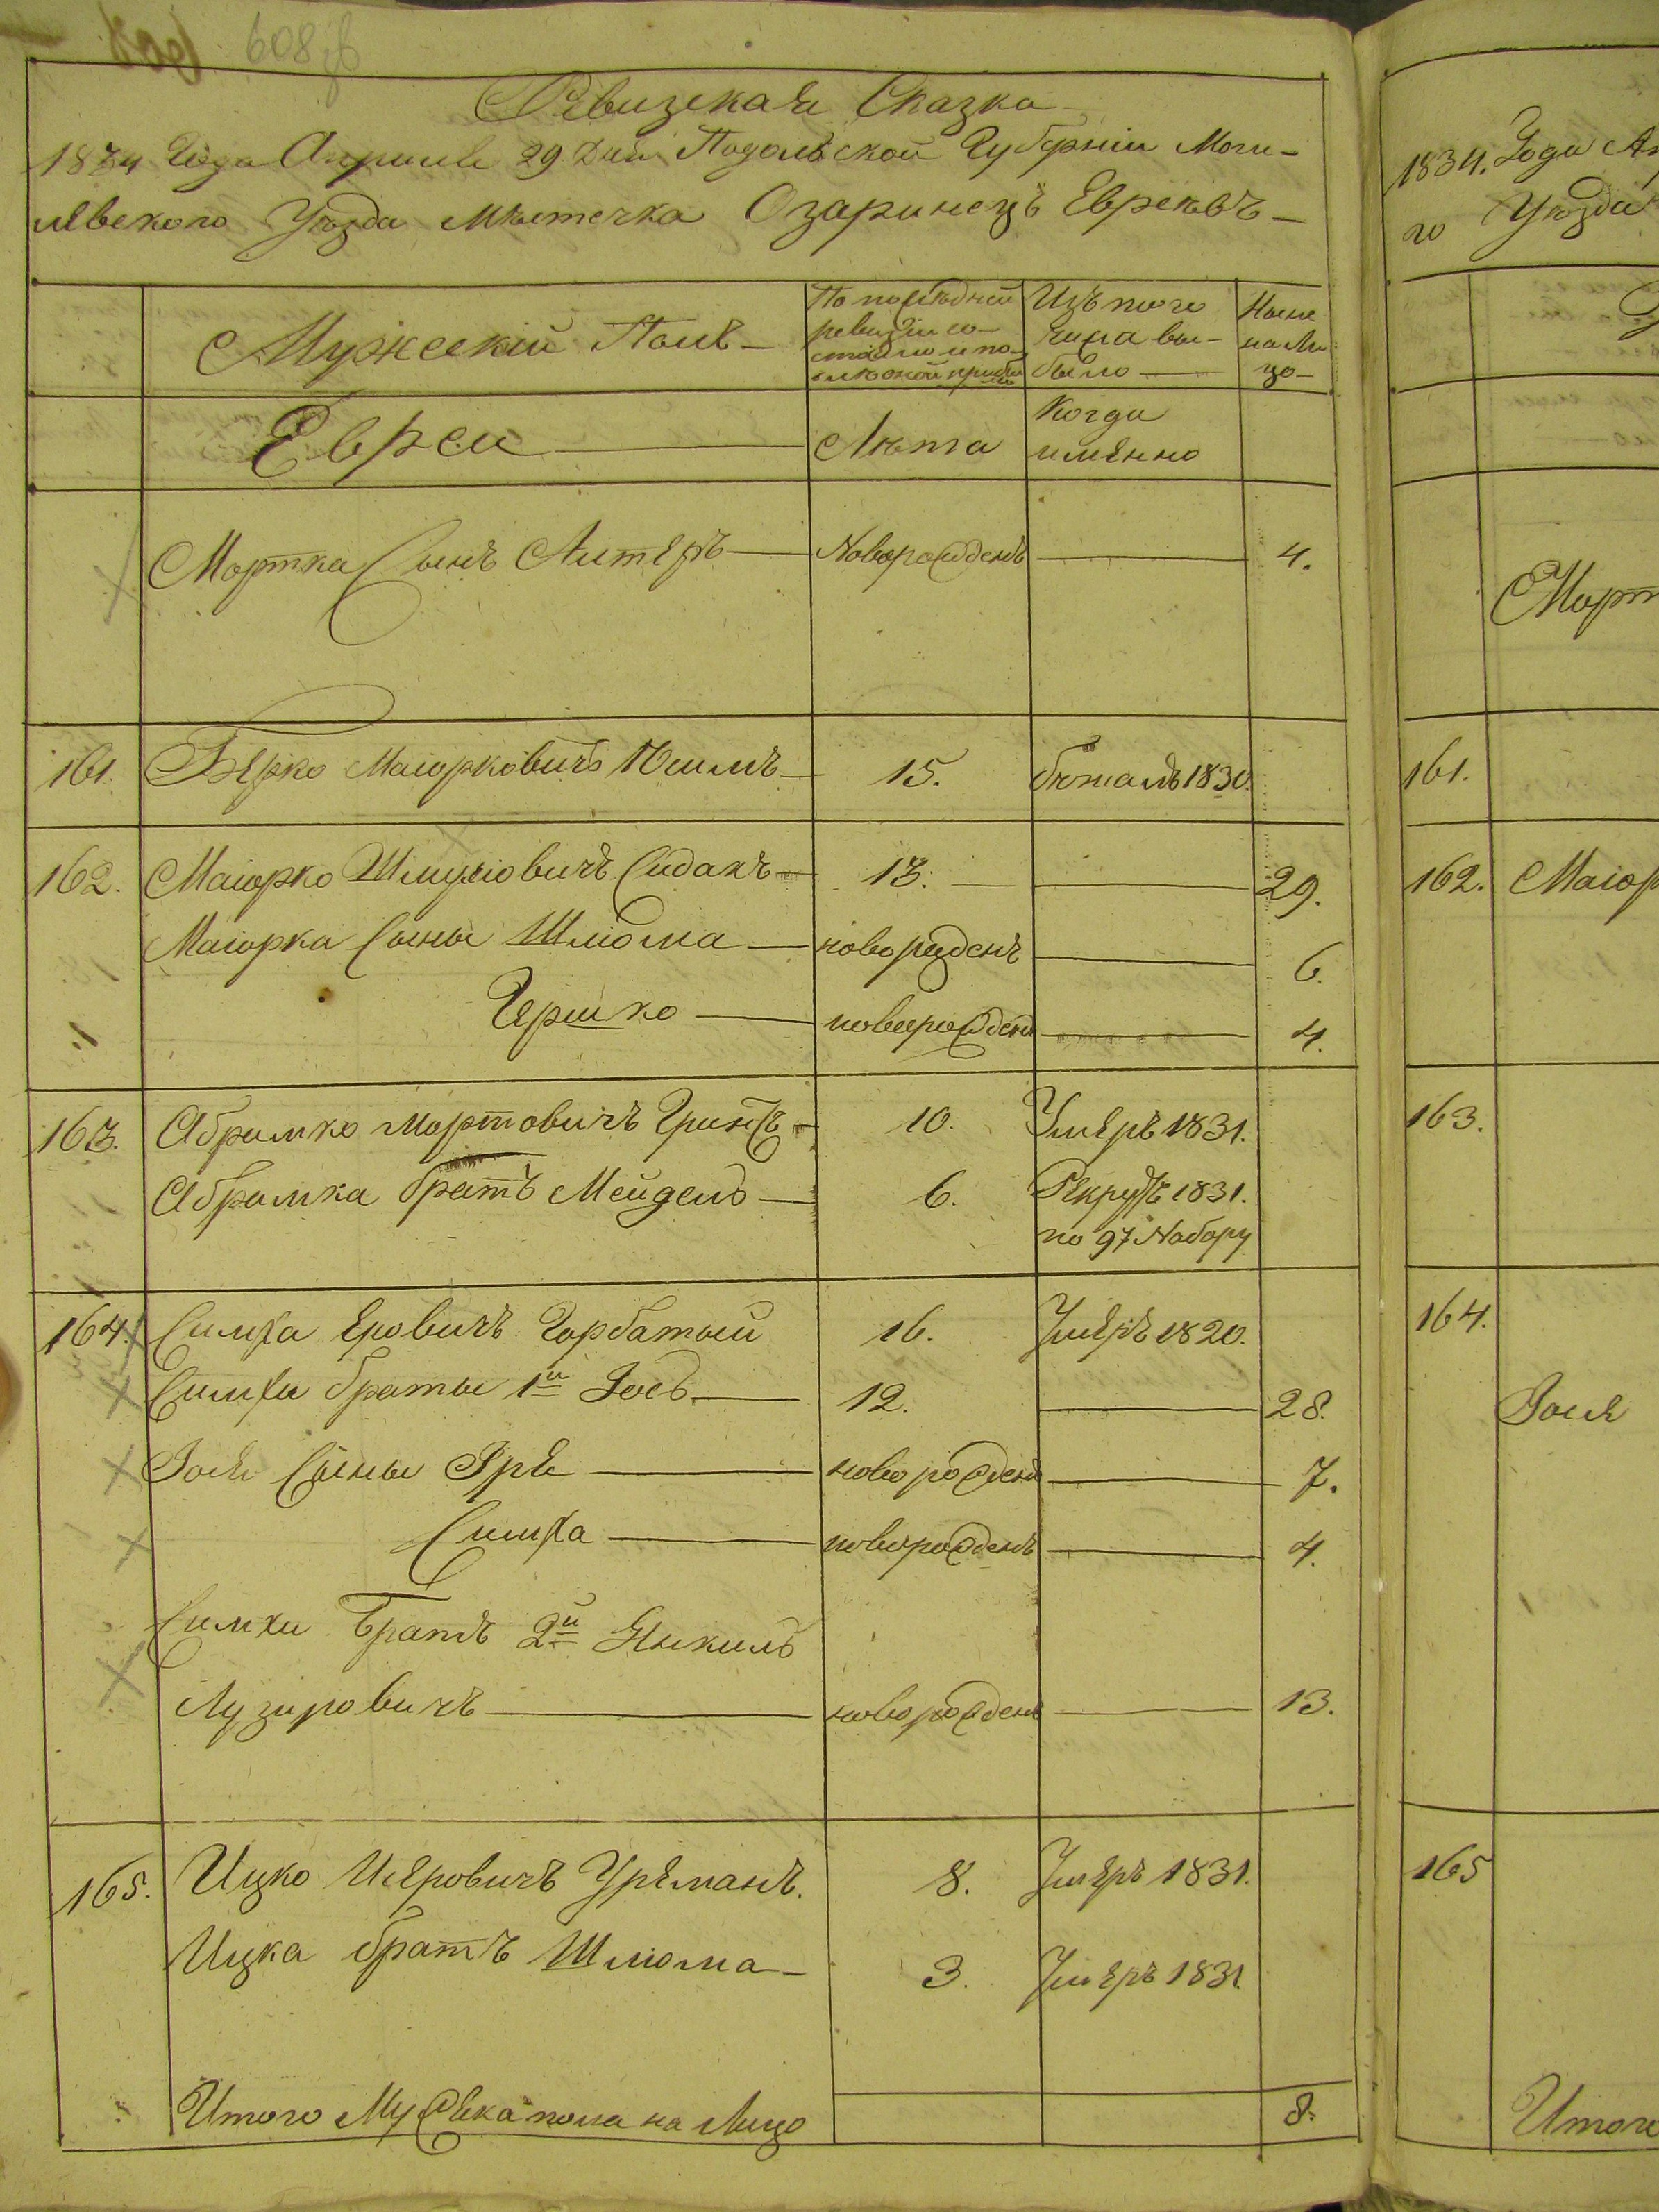 609
Ревизская Сказка
1834 Года Апреля 29 Дня Подольской Губерніи Моги-
левского Уѣзда Мѣстечка Озаринецъ Евреевъ
Мужескій Полъ
По последней ревизіи состояло и по
Изъ того числа выбыло
Ныне на Лицо
Евреи
Лѣта
Когда именно
Мортка Сынъ Литеръ Новорожденъ 4.
161. Берко Маіорковичъ 15. бѣжалъ 1830.
162. Маіорко Шмуліовичъ Сидакъ 13. 29.
Маіорка Сыны Шліома новорожденъ 6.
Гершко новорожденъ 4.
163. Абрамко Мортовичъ 10. Умеръ 1831.
Абрамка братъ Мейдель 6. Рекрутъ 1831.
по 97 Набору
164. Симха Еровичъ Горбатый 16. Умеръ 1820.
Симхи браты 1й Іось 12. 28.
Іося Сыны Эре новорожденъ 7.
Симха новорожденъ 4.
Симхи Братъ 2й Янкиль
Лузировичъ новорожденъ 13.
165. Ицко Иеровичъ Уреманъ. 8. Умеръ 1831.
Ицка братъ Шліома 3. Умеръ 1831
Итого Мужеска пола на Лицо 8.
1834. Года Ап
го Уѣзда
Морт
161.
162. Маіор
163.
164.
Іося
165
Итого